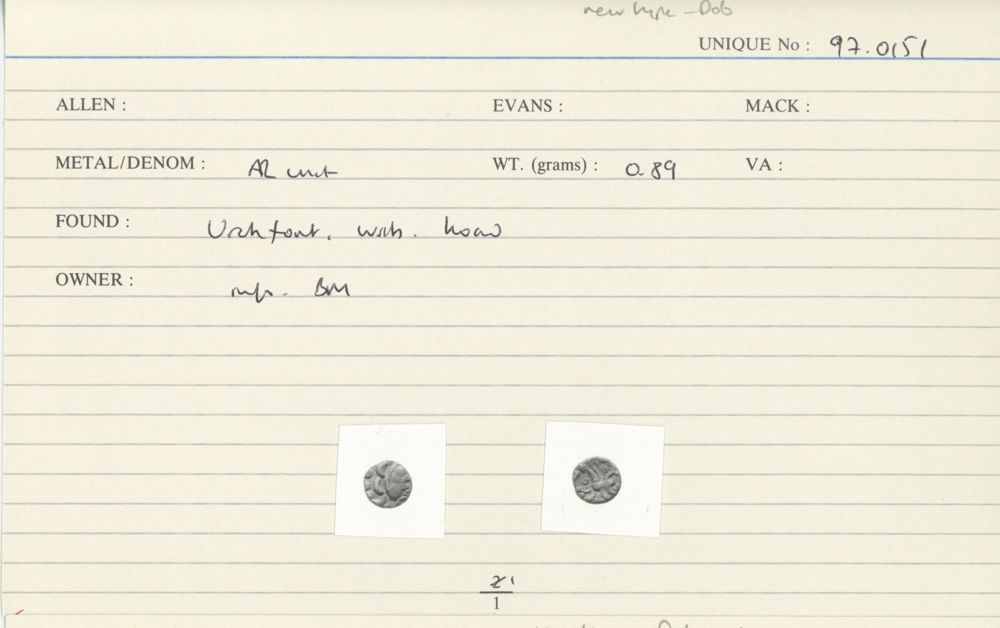 new type - Dob
UNIQUE No : 97.0151
ALLEN : EVANS : MACK :
METAL/DENOM : AR unit WT. (grams) : 0.89 VA :
FOUND : Urchfont, Wilts. hoard
OWNER : BM
1
1